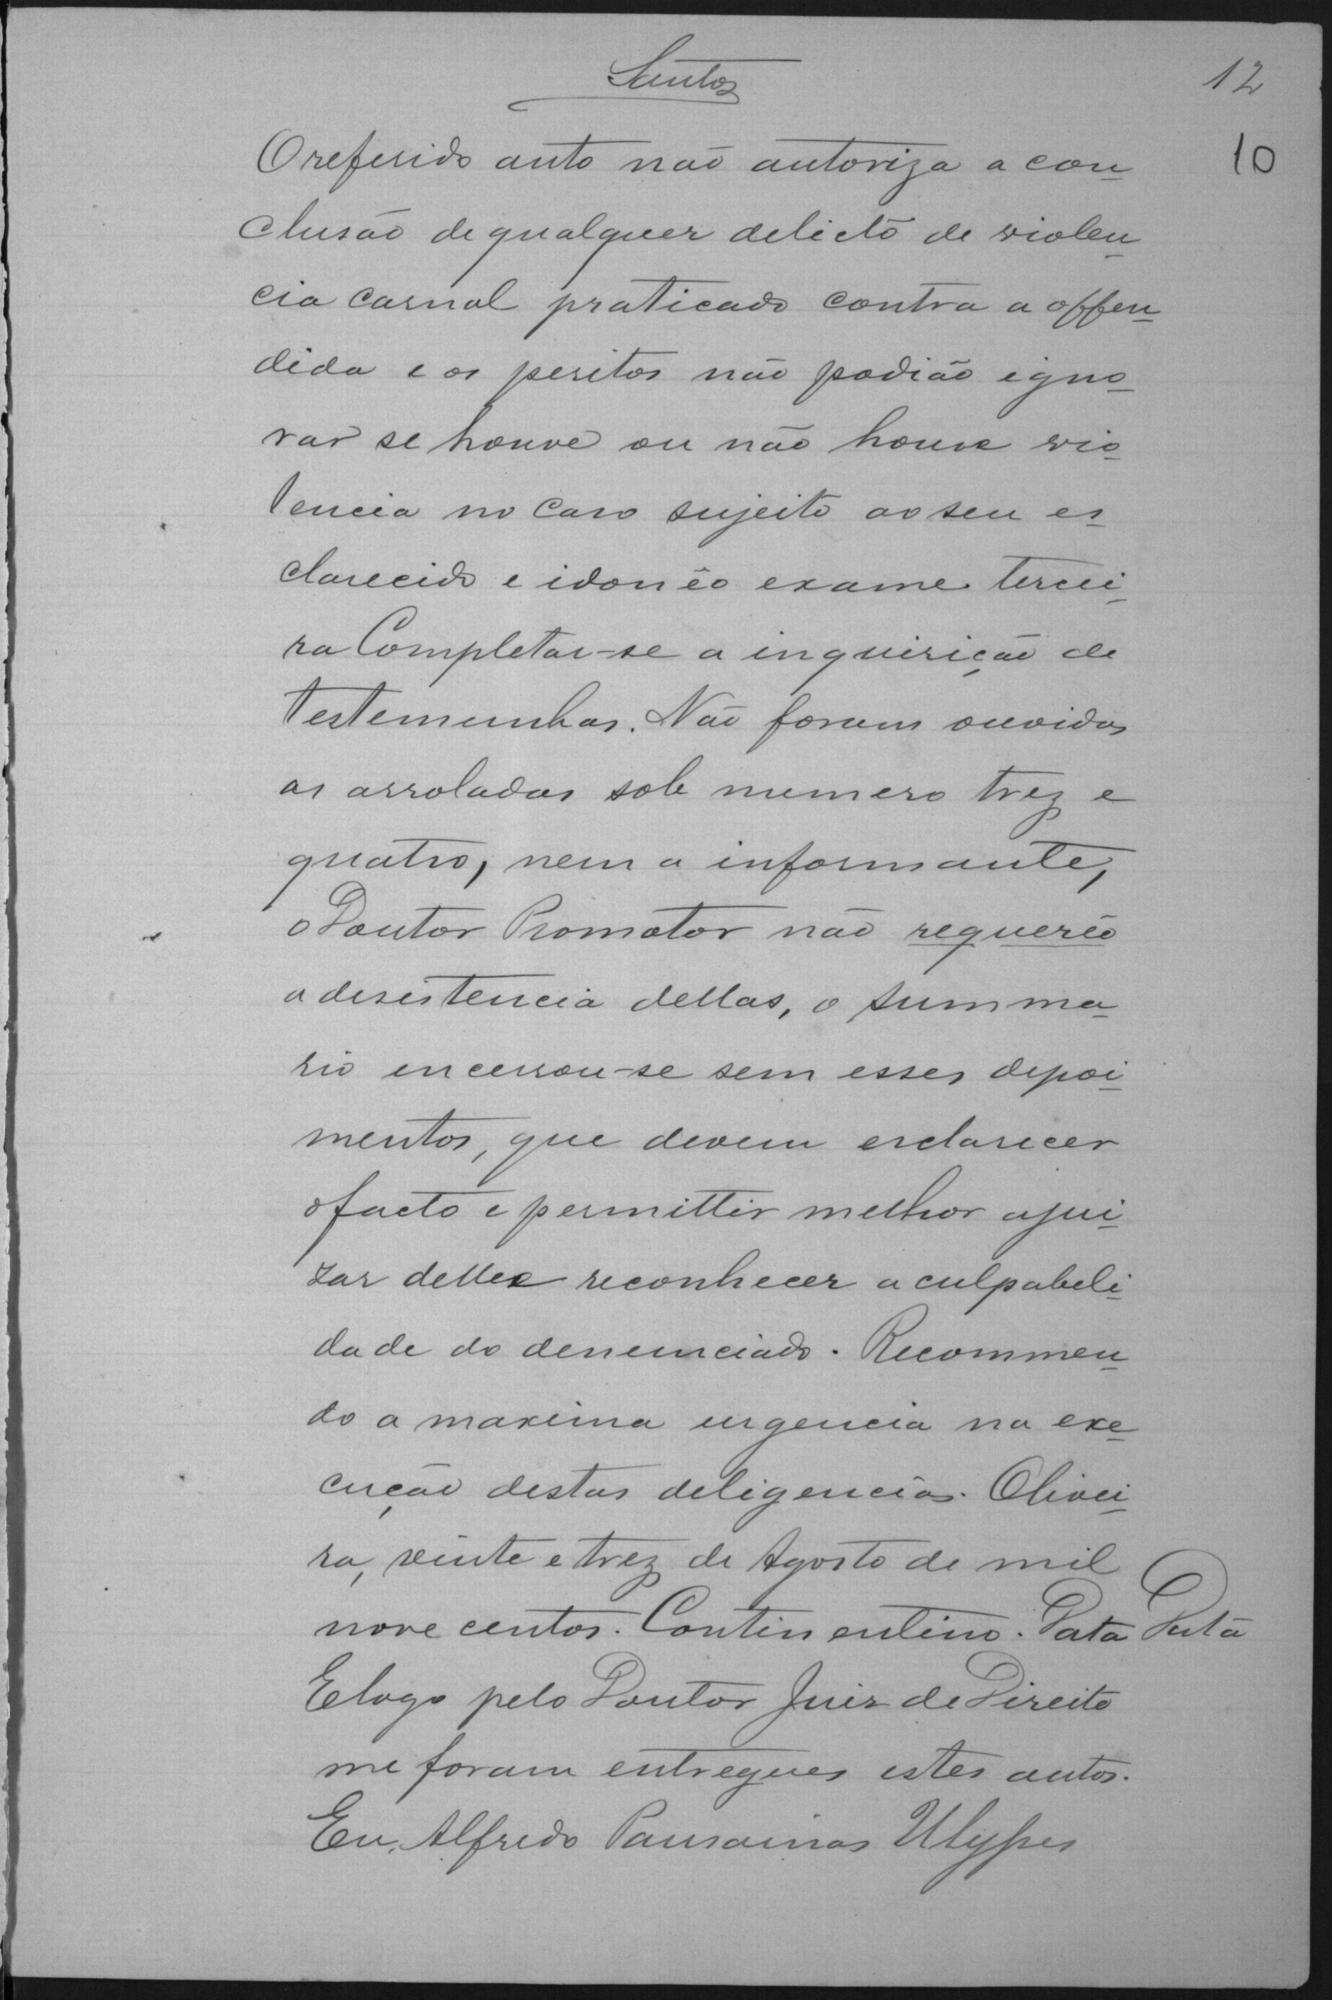 Santos
12
10
O referido auto não autoriza a con-
clusão de qualquer delicto de violen-
cia carnal praticado contra a offen-
dida e os peritos não podião igno-
rar se houve ou não houve vio-
lencia no caso sujeito ao seu es
clarecido e idonêo exame. tercei-
ra Completar-se a inquirição de
testemunhas. Não foram ouvidas
as arroladas sob numero trez e
quatro, nem a informante,
o Doutor Promotor não requereo
a desistencia dellas, o summa-
rio encerrou-se sem esses depoi-
mentos, que devem esclarecer
o facto e permittir melhor ajui-
zar delle e reconhecer a culpabeli-
dade do denunciado. Recommen-
do a maxima urgencia na exe-
cução destas deligencias. Olivei-
ra, vinte e trez de Agosto de mil
nove centos. Continentino. Data Data
E logo pelo Doutor Juiz de Direito
me foram entregues estes autos.
Eu, Alfredo Pausainas Ulysses